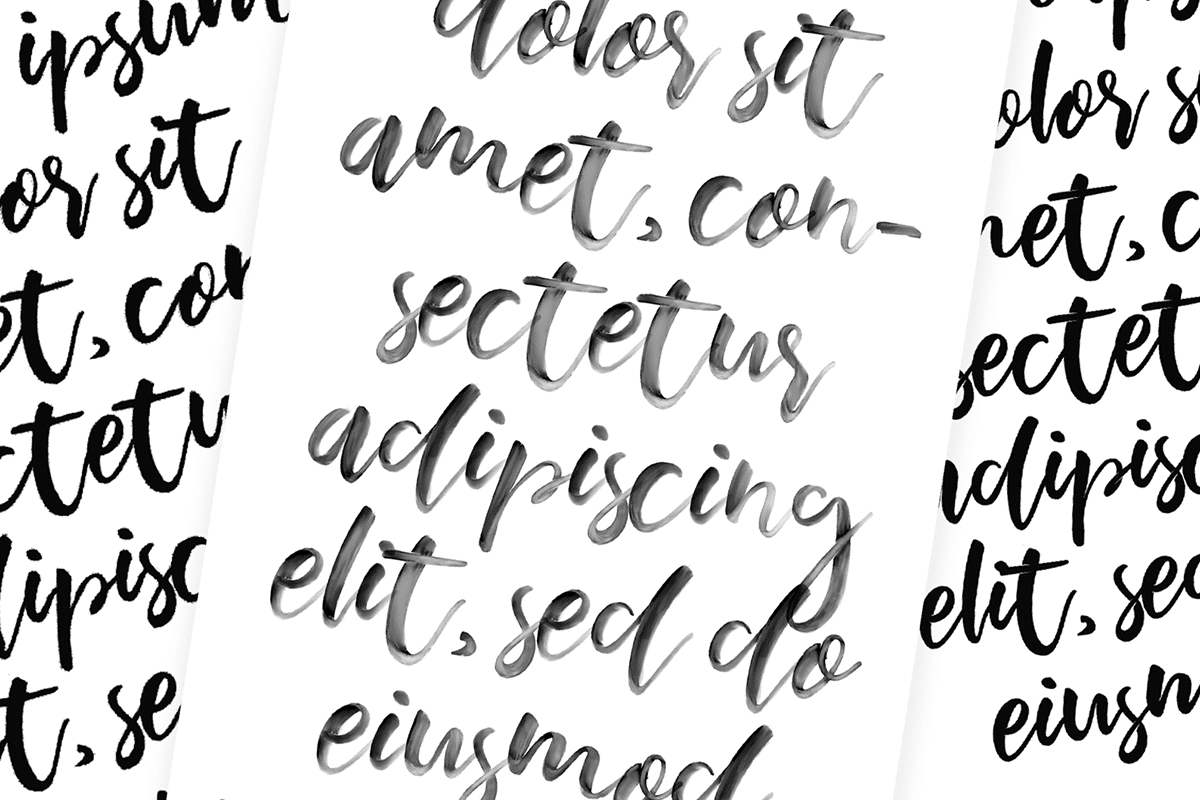 ipsum
or sit
et, con
ctetu
lipisc
t, se
dolor sit
amet, con-
sectetur
adipiscing
elit, sed do
eiusmod
olor s
et, c
sectet
dipisc
elit, sec
eiusm